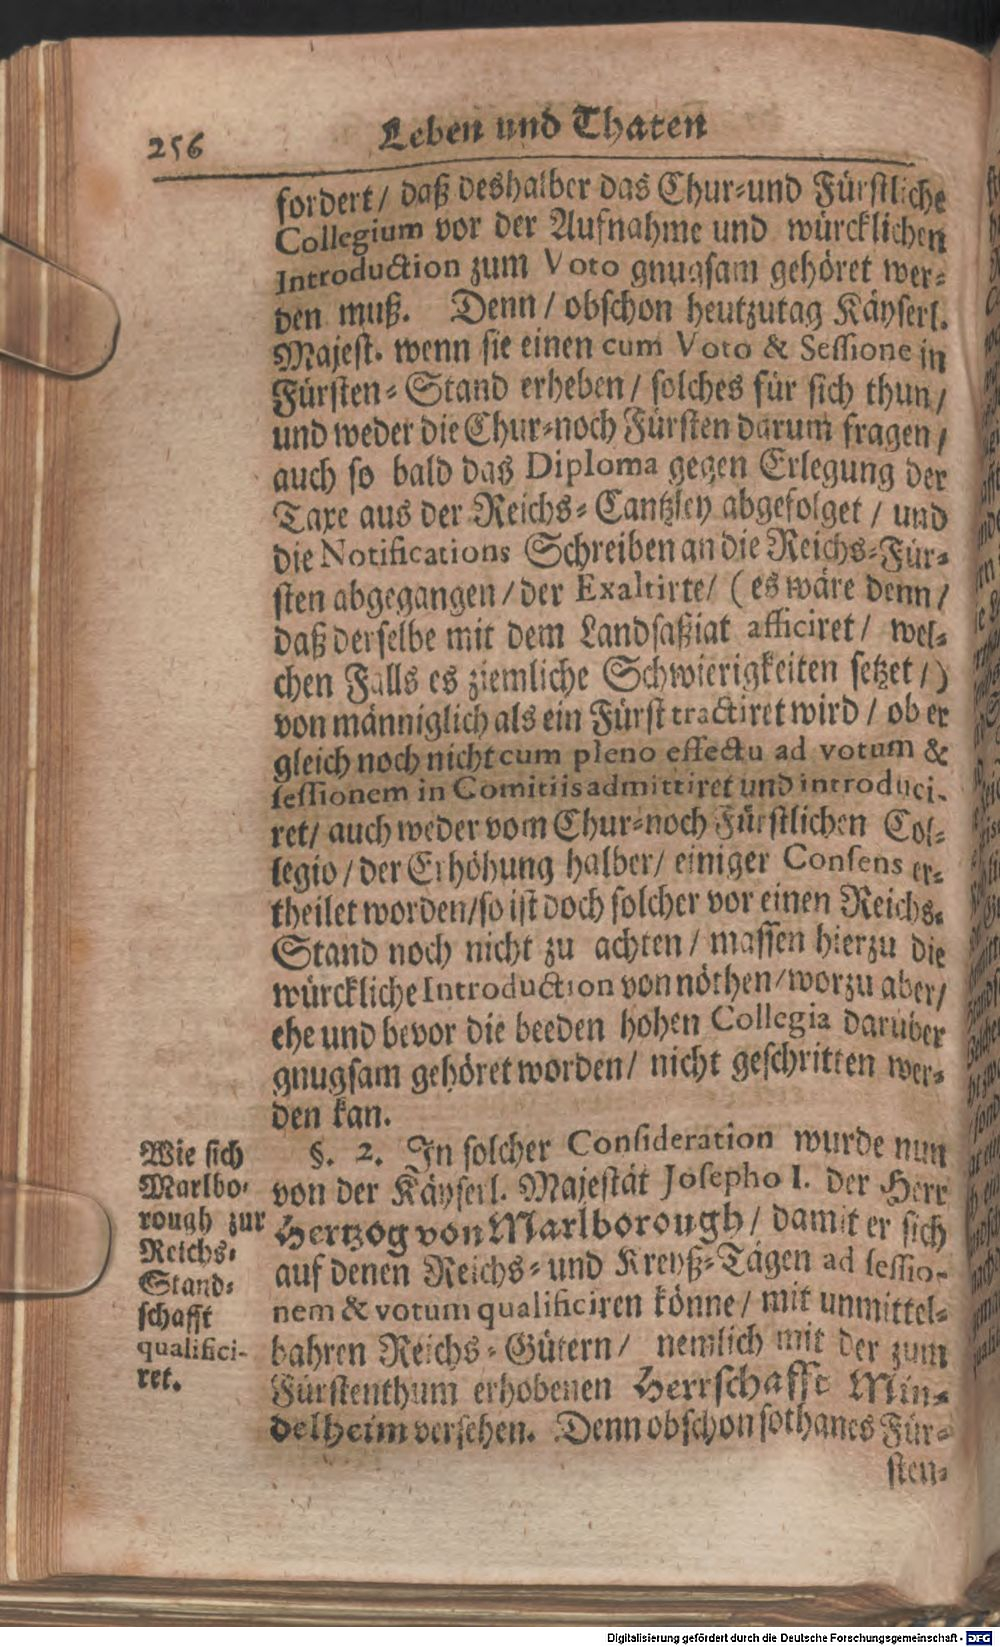 256 Leben und Thaten
fordert/ daß deshalber das Chur-und Fürstliche
Collegium vor der Aufnahme und würcklichen
Introduction zum Voto gnugsam gehöret wer-
den muß. Denn/ obschon heutzutag Käyserl.
Majest. wenn sie einen cum Voto & Sessione in
Fürsten-Stand erheben/ solches für sich thun/
und weder die Chur-noch Fürsten darum fragen/
auch so bald das Diploma gegen Erlegung der
Taxe aus der Reichs-Cantzley abgefolget/ und
die Notifications Schreiben an die Reichs-Für-
sten abgegangen/ der Exaltirte/ (es wäre denn/
daß derselbe mit dem Landsaßiat afficiret/ wel-
chen Falls es ziemliche Schwierigkeiten setzet/)
von männiglich als ein Fürst tractiret wird/ ob er
gleich noch nicht cum pleno effectu ad votum &
sessionem in Comitiis admittiret und introduci-
ret/ auch weder vom Chur-noch Fürstlichen Col-
legio/ der Erhöhung halber/ einiger Consens er-
theilet worden/ so ist doch solcher vor einen Reichs-
Stand noch nicht zu achten/ massen hierzu die
würckliche Introduction von nöthen/ worzu aber/
ehe und bevor die beeden hohen Collegia darüber
gnugsam gehöret worden/ nicht geschritten wer-
den kan.
§. 2. In solcher Consideration wurde nun
von der Käyserl. Majestät Josepho I. der Herr
Hertzog von Marlborough/ damit er sich
auf denen Reichs-und Kreyß-Tägen ad sessio-
nem & votum qualificiren könne/ mit unmittel-
bahren Reichs-Gütern/ nemlich mit der zum
Fürstenthum erhobenen Herrschafft Min-
delheim versehen. Denn obschon sothanes Für-
sten-
Wie sich
Marlbo-
rough zur
Reichs-
Stand-
schafft
qualifici-
ret.
Digitalisierung gefördert durch die Deutsche Forschungsgemeinschaft - DFG